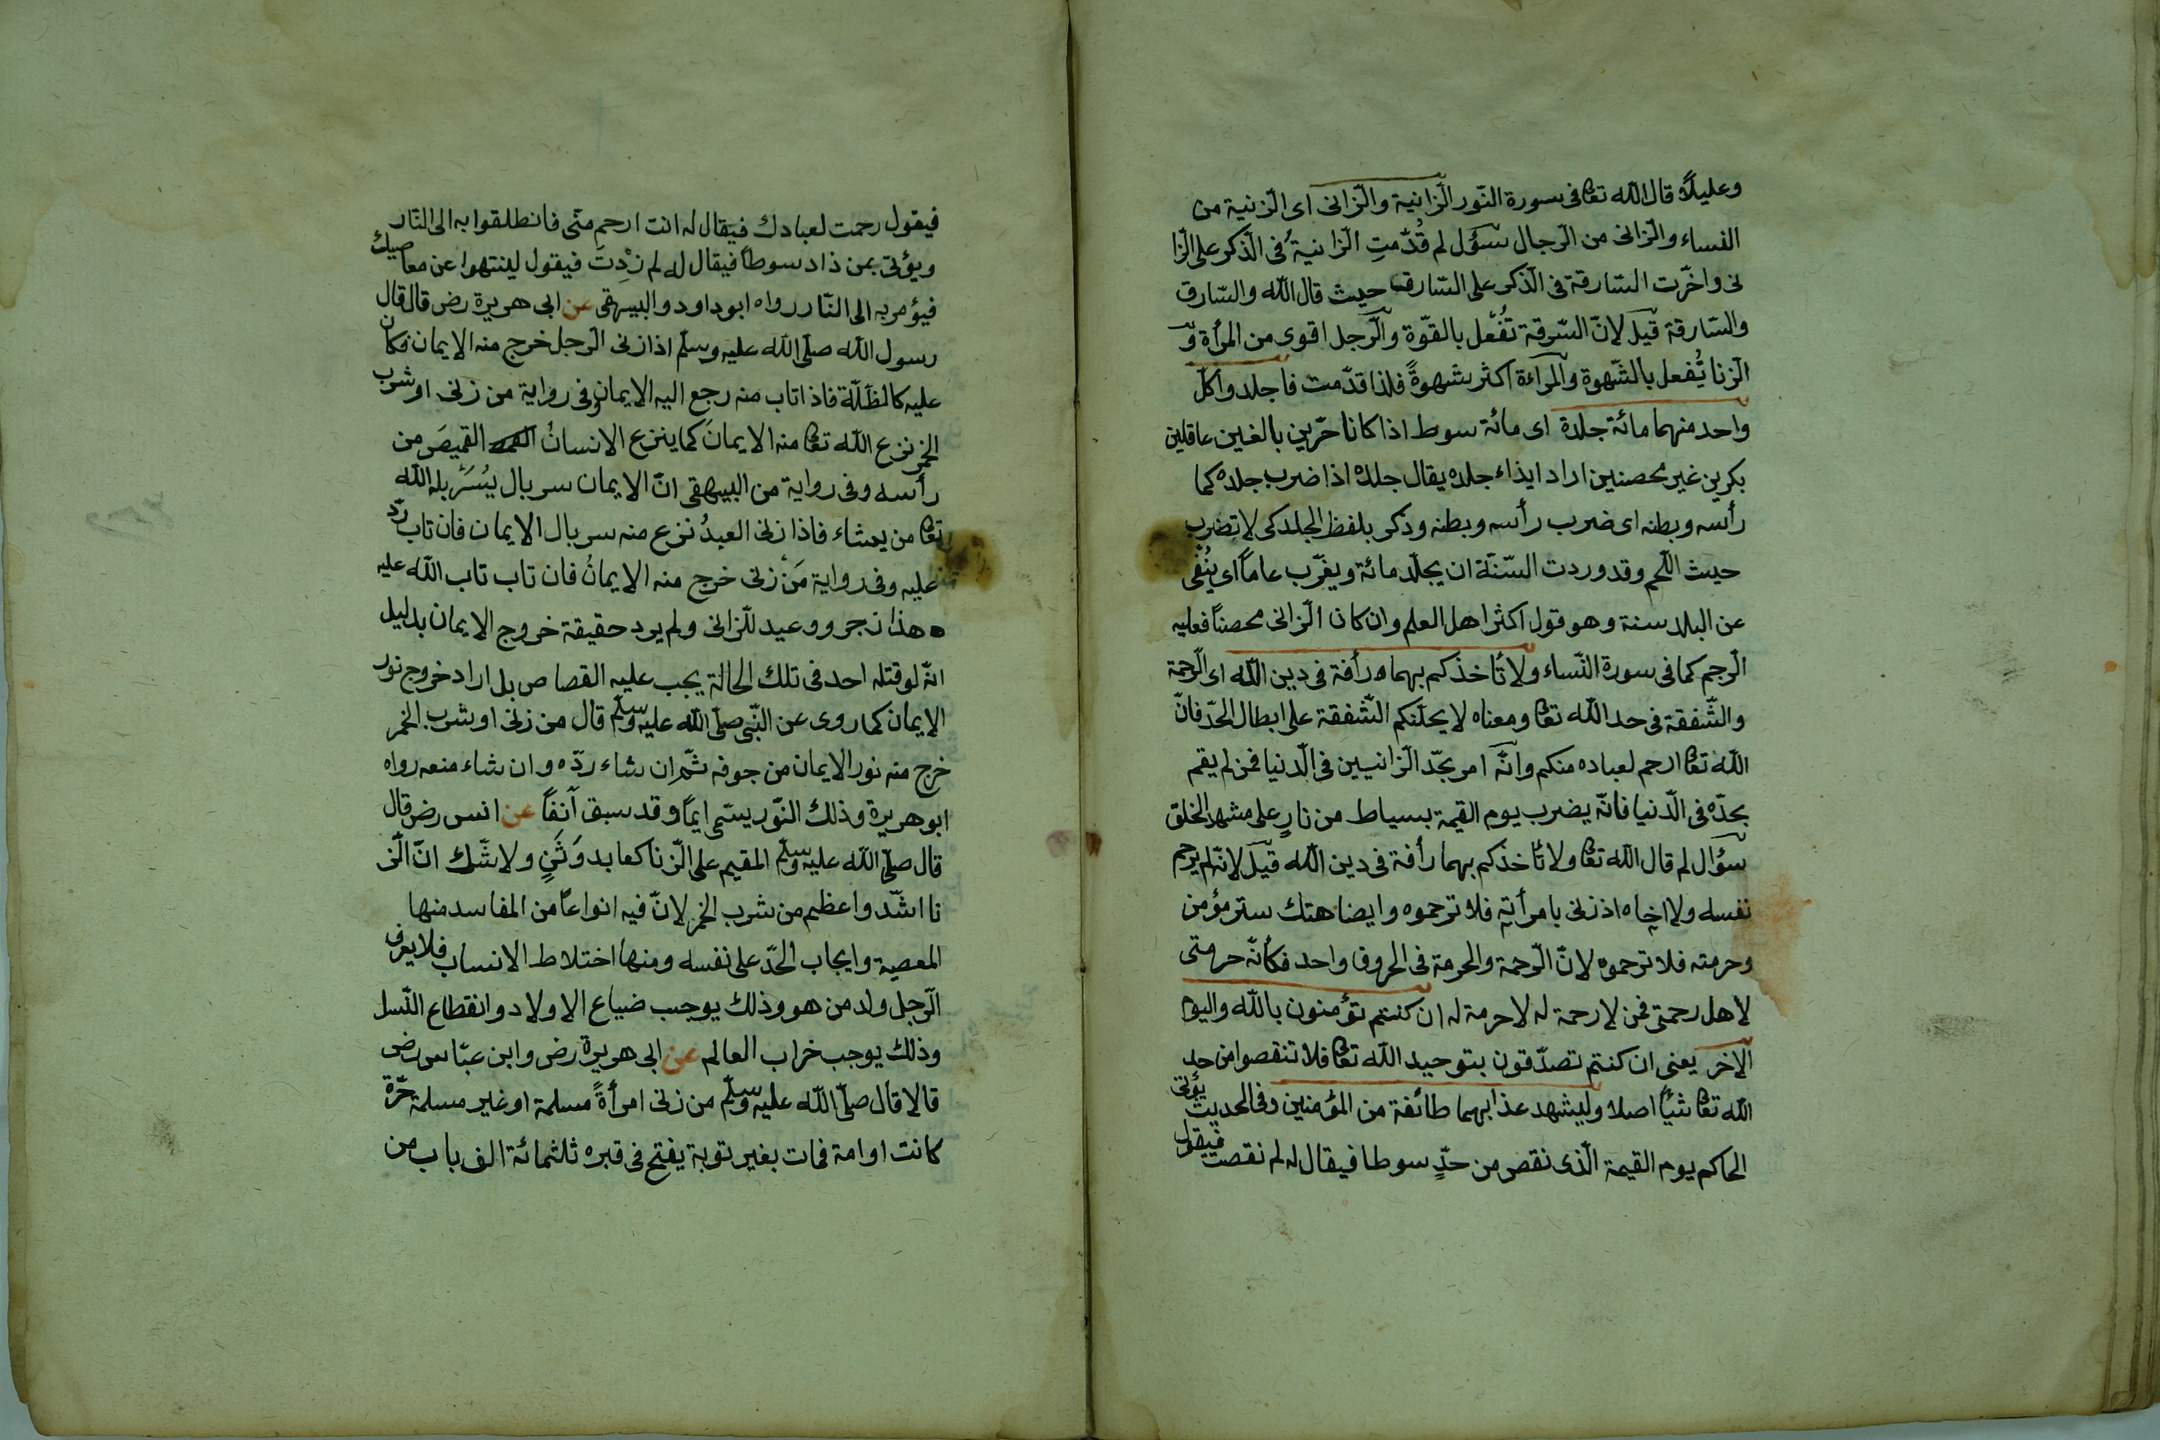 وعليلًا قال الله تعا في سورة النّور الزّانية والزّانى اى الزنية من
النساء والزّانى من الرّجال سؤل لم قُدّمتِ الزانيةُ في الذّكر على الزّا
نى واخّرت السّارقة فى الذّكر على السّارق حيث قال الله والسّارق
والسّارقة قيل لانّ السّرقة تُفْعل بالقوّة والرّجل اقوى من المرأة و
الزّنا تُفعل بالشّهوة والمراءة اكثر شهوةً فلذا قدّمت فاجلدوا كلّ
واحد منهما مائة جلدة اى مائة سوط اذا كانا حرّين بالغين عاقلين
بكرين غير محصنين اراد ايذاء جلده يقال جلده اذا ضرب جلده كما
رأسه وبطنه اى ضرب رأسه وبطنه وذكر بلفظ الجلد كى لا تضرب
حيث اللّحم وقد وردت السّنّة ان يجلّد مائة ويغرّب عاماً اى يُنْفى
عن البلد سنة وهو قول اكثر اهل العلم وان كان الزّانى محصناً فعليه
الرّجم كما فى سورة النّساء ولا تأخذكم بهما رأفة فى دين الله اى الرّحمة
والشّفقة فى حد الله تعا ومعناه لا يحلّنكم الشّفقة على ابطال الحدّ فانّ
الله تعا ارحم لعباده منكم وانّه امر بحدّ الزّانيين فى الدّنيا فمن لم يقم
بحدّه فى الدّنيا فانّه يضرب يوم القيمة بسياط من نارٍ على مشهد الخلق
سؤال لم قال الله تعا ولا تأخذكم بهما رأفة فى دين الله قيل لانّه لم يرحم
نفسه ولا اخاه اذ زنى بامرأته فلا ترحموه وايضا هتك ستر مؤمن
وحرمته فلا ترحموه لانّ الرّحمة والحرمة فى الحروف واحد فكأنّه حرمتى
لاهل رحمتى فمن لا رحمة له لا حرمة له ان كنتم تؤمنون بالله واليوم
الآخر يعنى ان كنتم تصدّقون بتوحيد الله تعا فلا تنقصوا من حد
الله تعا شيأ اصلا وليشهد عذابهما طائفة من المؤمنين وفى الحديث يؤتى
الحاكم يوم القيمة الّذى نقص من حدٍّ سوطا فيقال له لم نقصت فيقول
فيقول رحمت لعبادك فيقال له انت ارحم منّى فانطلقوا به الى النّار
ويؤتى بمن زاد سوطاً فيقال له لم زِدْتَ فيقول لينتهوا عن معاصيك
فيؤمر به الى النّار رواه ابو داود والبيهقى عن ابى هريرة رض قال قال
رسول الله صلّى الله عليه وسلّم اذا زنى الرّجل خرج منه الايمان فكان
عليه كالظلّة فاذا تاب منه رجع اليه الايمان وفى رواية من زنى او شرب
الخمر نزع الله تعا منه الايمانَ كما ينزع الانسانُ القميصَ من
رأسه وفى رواية من البيهقى انّ الايمان سربال يُسَرْبله الله
تعا من يشاء فاذا زنى العبدُ نزع منه سربال الايمان فان تاب ردّ
عليه وفى رواية مَنْ زنى خرج منه الايمانُ فان تاب تاب الله عليه
هذا زجر ووعيد للزّانى ولم يرد حقيقة خروج الايمان بدليل
انّه لو قتله احد فى تلك الحالة يجب عليه القصاص بل اراد خروج نور
الايمان كما روى عن النّبى صلّى الله عليه وسلّم قال من زنى او شرب الخمر
خرج منه نور الايمان من جوفه ثمّ ان شاء ردّه وان شاء منعه رواه
ابو هريرة وذلك النّور يسّمى ايماً وقد سبق آنفاً عن انس رض قال
قال صلّى الله عليه وسلّم المقيم على الزّنا كعابد وَثَنٍ ولا شّك انّ الزّ
نا اشّد واعظم من شرب الخمر لانّ فيه انواعاً من المفاسد منها
المعصية وايجاب الحدّ على نفسه ومنها اختلاط الانساب فلا يعرف
الرّجل ولد من هو وذلك يوجب ضياع الاولاد وانقطاع النّسل
وذلك يوجب خراب العالم عن ابى هريرة رض وابن عبّاس رض
قالا قال صلّى الله عليه وسلّم من زنى امرأةً مسلمة او غير مسلمة حرّة
كانت او امة فمات بغير توبة يفتح فى قبره ثلثمائة الف باب من